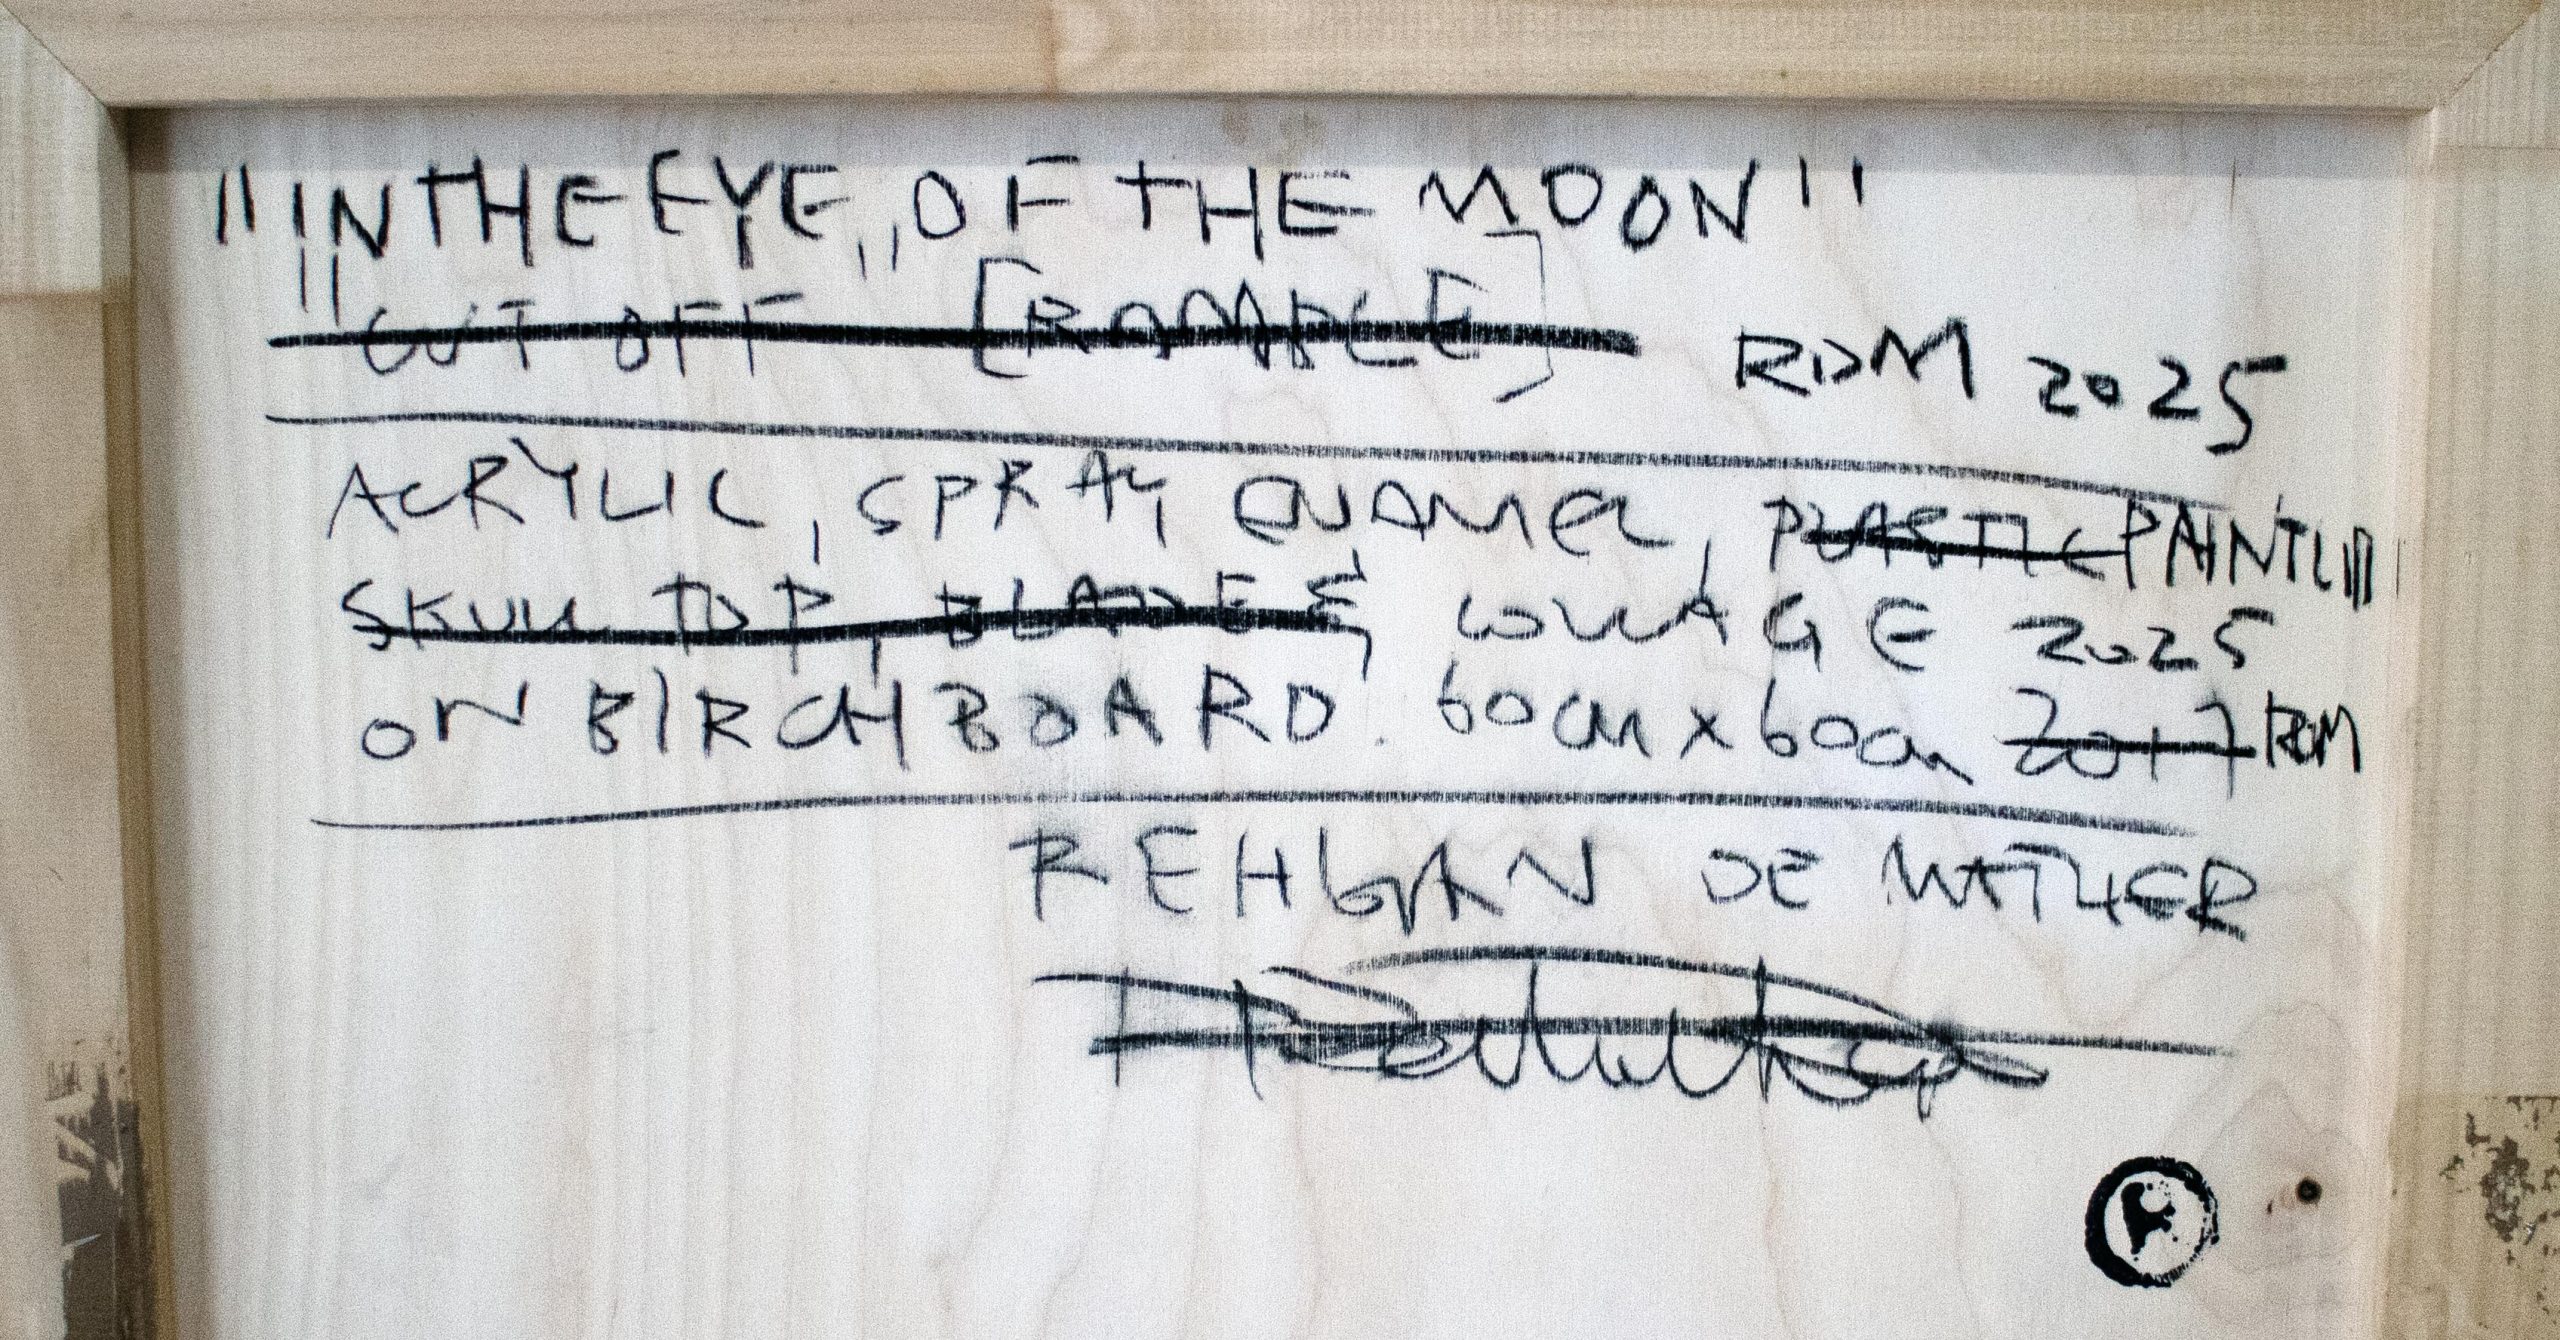 "IN THE EYE,, OF THE MOON"
"CUT OFF" [RAMBLE] RDM 2025
ACRYLIC, SPRAY, ENAMEL, PLASTIC PAINT
SKULL TOP, BLADES, COLLAGE 2025
ON BIRCH BOARD. 60cm x 60cm 2017 RDM
REHGAN DE MATHER